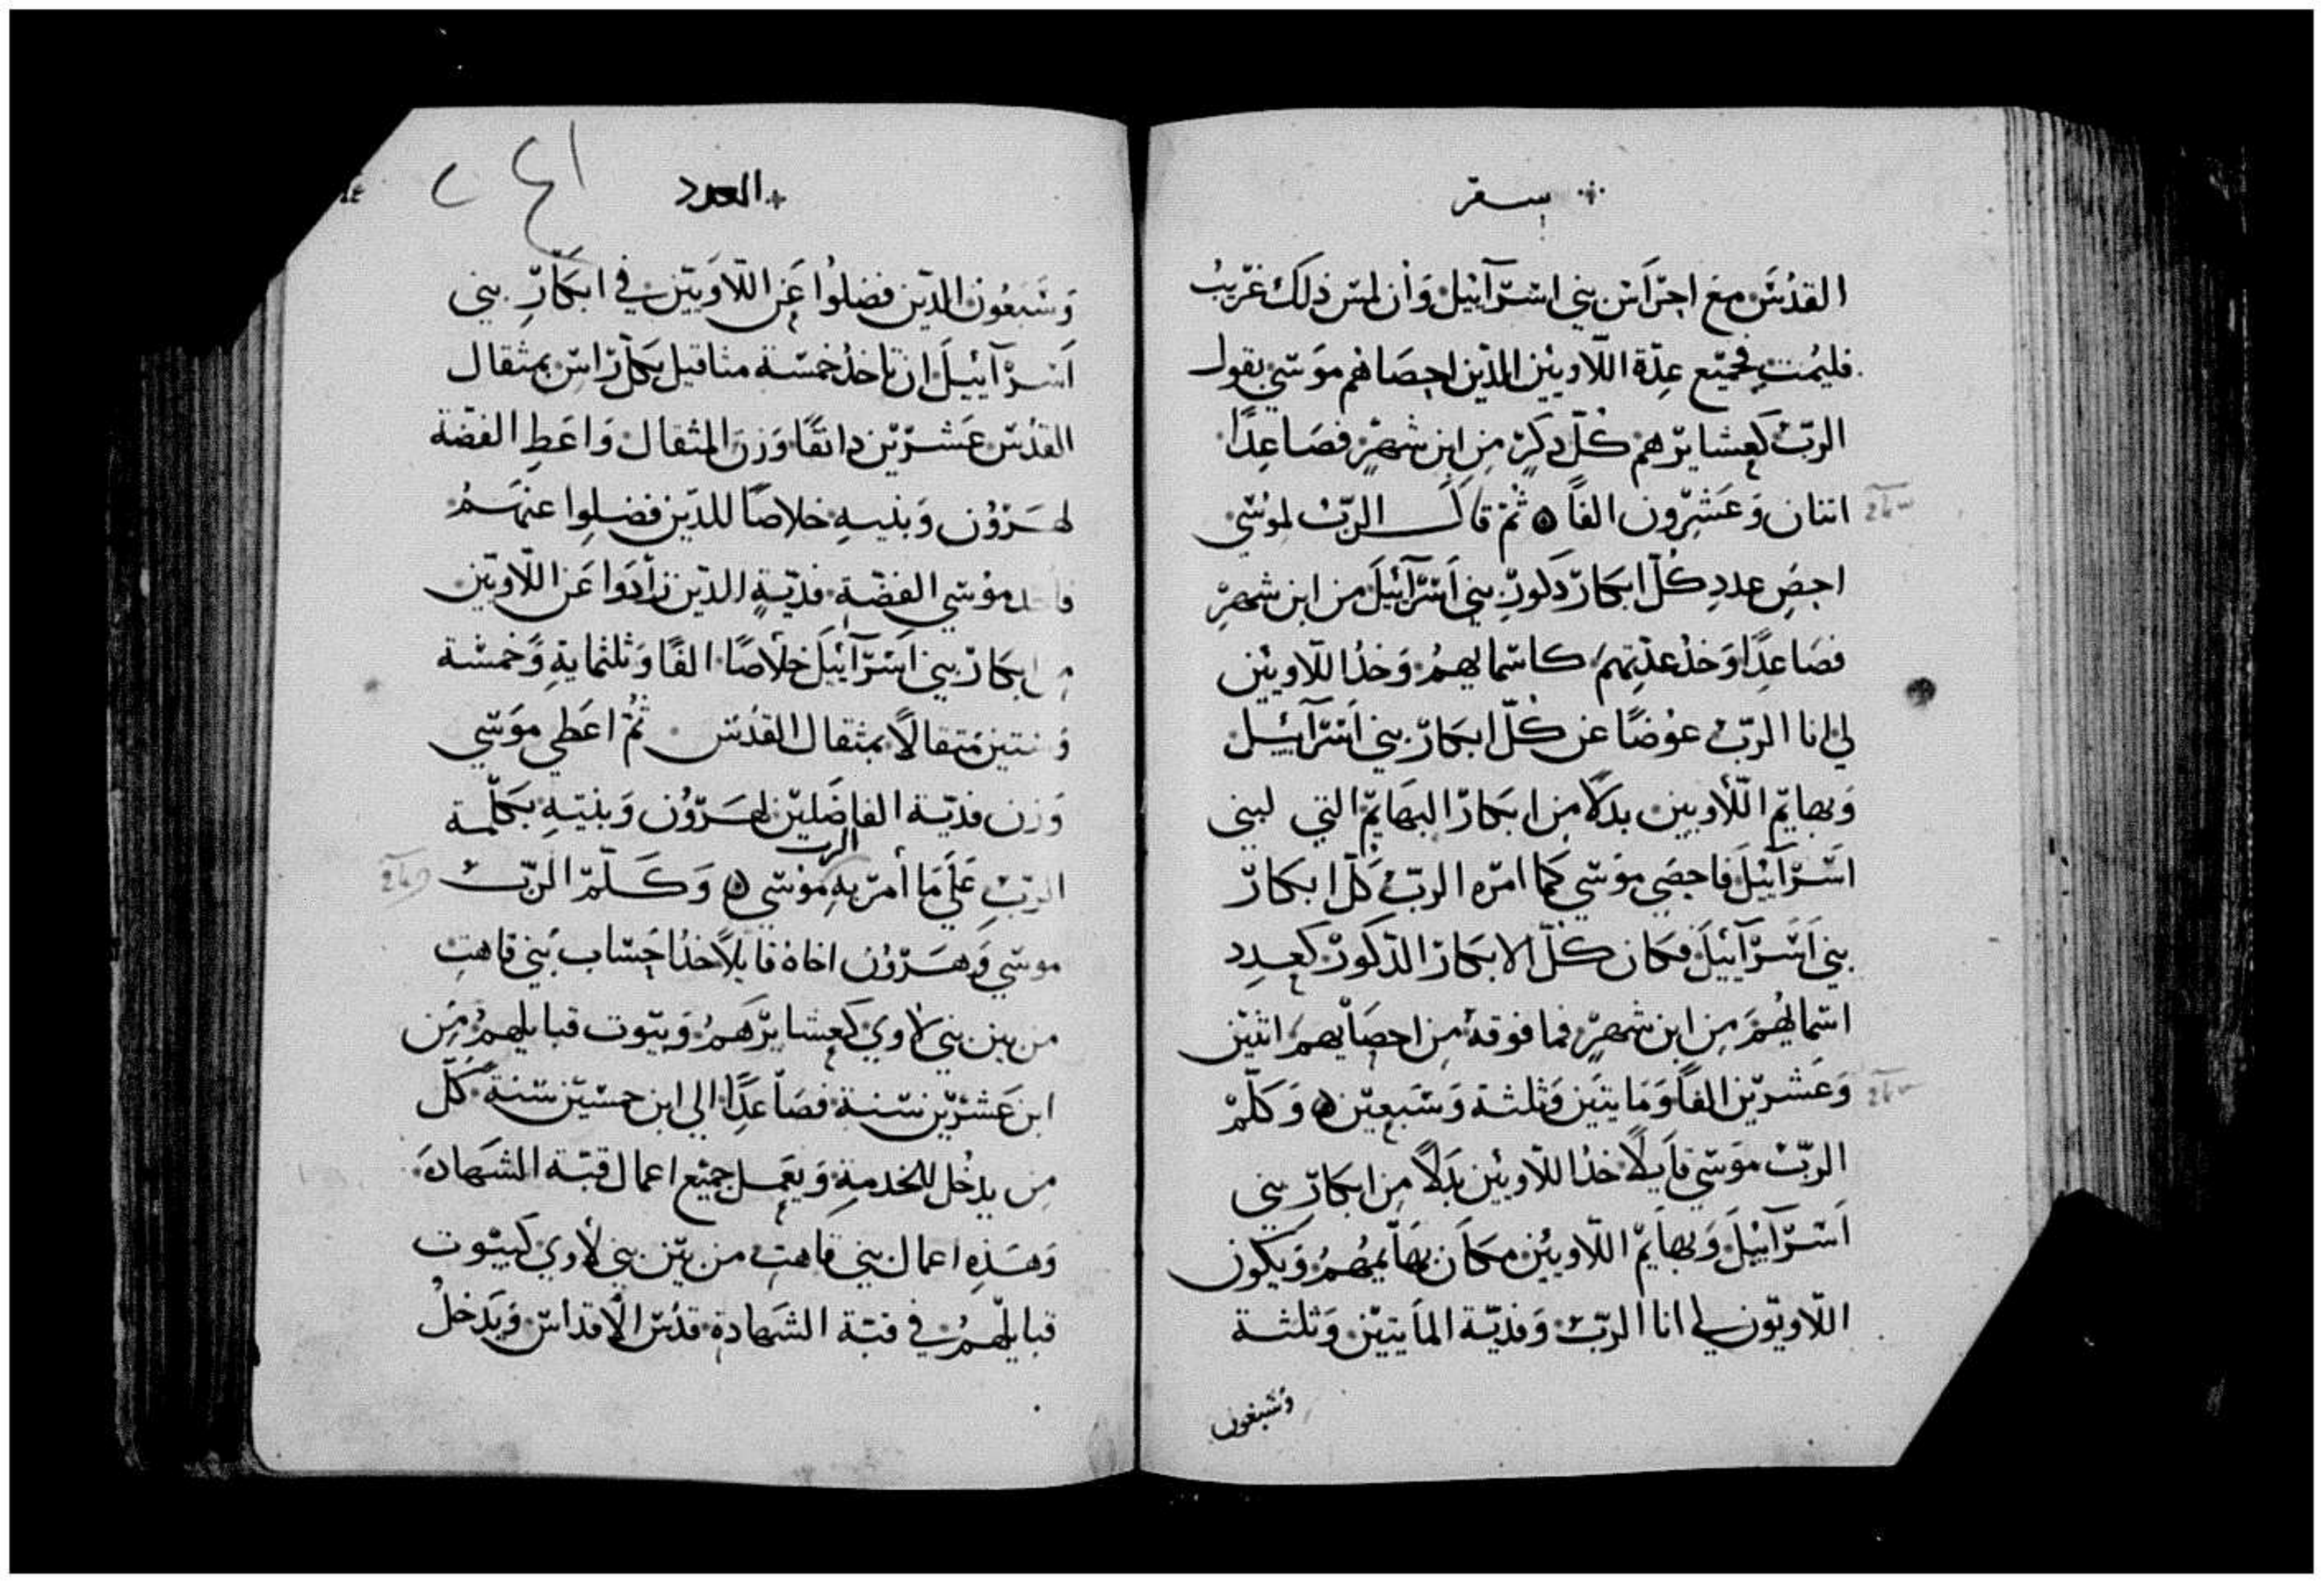 سفر
القدس مع احراس بني اسرآئيل وان لمس ذلك غريب
فليمت فجميع عدة اللاويين الذين احصاهم موسي بقول
الرب كعشايرهم كل دكر من ابن شهر فصاعدا
اتنان وعشرون الفا ثم قال الرب لموسي
احص عدد كل ابكار دكور بني اسرآئيل من ابن شهر
فصاعدا وخذ عدتهم كاسمايهم وخذ اللاويين
لي انا الرب عوضا عن كل ابكار بني اسرآئيل
وبهايم اللاويين بدلا من ابكار البهايم التي لبني
اسرآئيل فاحصي موسي كما امره الرب كل ابكار
بني اسرآئيل فكان كل الابكار الذكور كعدد
اسمايهم من ابن شهر فما فوقه من احصايهم اثنين
وعشرين الفا ومايتين وثلثة وسبعين وكلم
الرب موسي قايلا خذ اللاويين بدلا من ابكار بني
اسرآئيل وبهايم اللاويين مكان بهايمهم ويكون
اللاويون لي انا الرب وفدية المايتين وثلثة
وسبعون
العدد
٢٤١
وسبعون الذين فضلوا عن اللاويين في ابكار بني
اسرآئيل ان تاخذ خمسة مثاقيل بكل راس بمثقال
القدس عشرين دانقا وزن المثقال واعط الفضة
لهرون وبنيه خلاصا للذين فضلوا عنهم
موسي الفضة فدية الذين زادوا عن اللاويين
ابكار بني اسرآئيل خلاصا الفا وثلثماية وخمسة
وستين متقالا بمثقال القدس ثم اعطي موسي
وزن فدية الفاضلين لهرون وبنيه بكلمة
الرب
الرب علي ما أمر به موسي وكلم الرب
موسي وهرون اخاه قايلا خذا حساب بني قاهت
من بين بني لاوي كعشايرهم وبيوت قبايلهم من
ابن عشرين سنة فصاعدا الي ابن خمسين سنة كل
من يدخل للخدمة ويعمل جميع اعمال قبة الشهادة
وهذه اعمال بني قاهت من بين بني لأوي كبيوت
قبايلهم في قبة الشهادة قدس الاقداس ويدخل